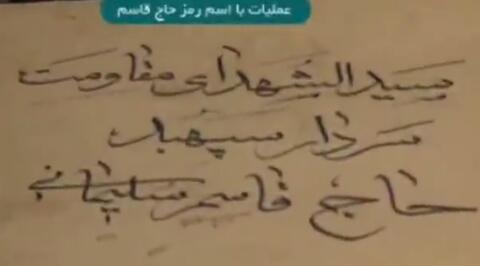 عملیات با اسم رمز حاج قاسم
سیدالشهدای مقاومت
سردار سپهبد
حاج قاسم سلیمانی